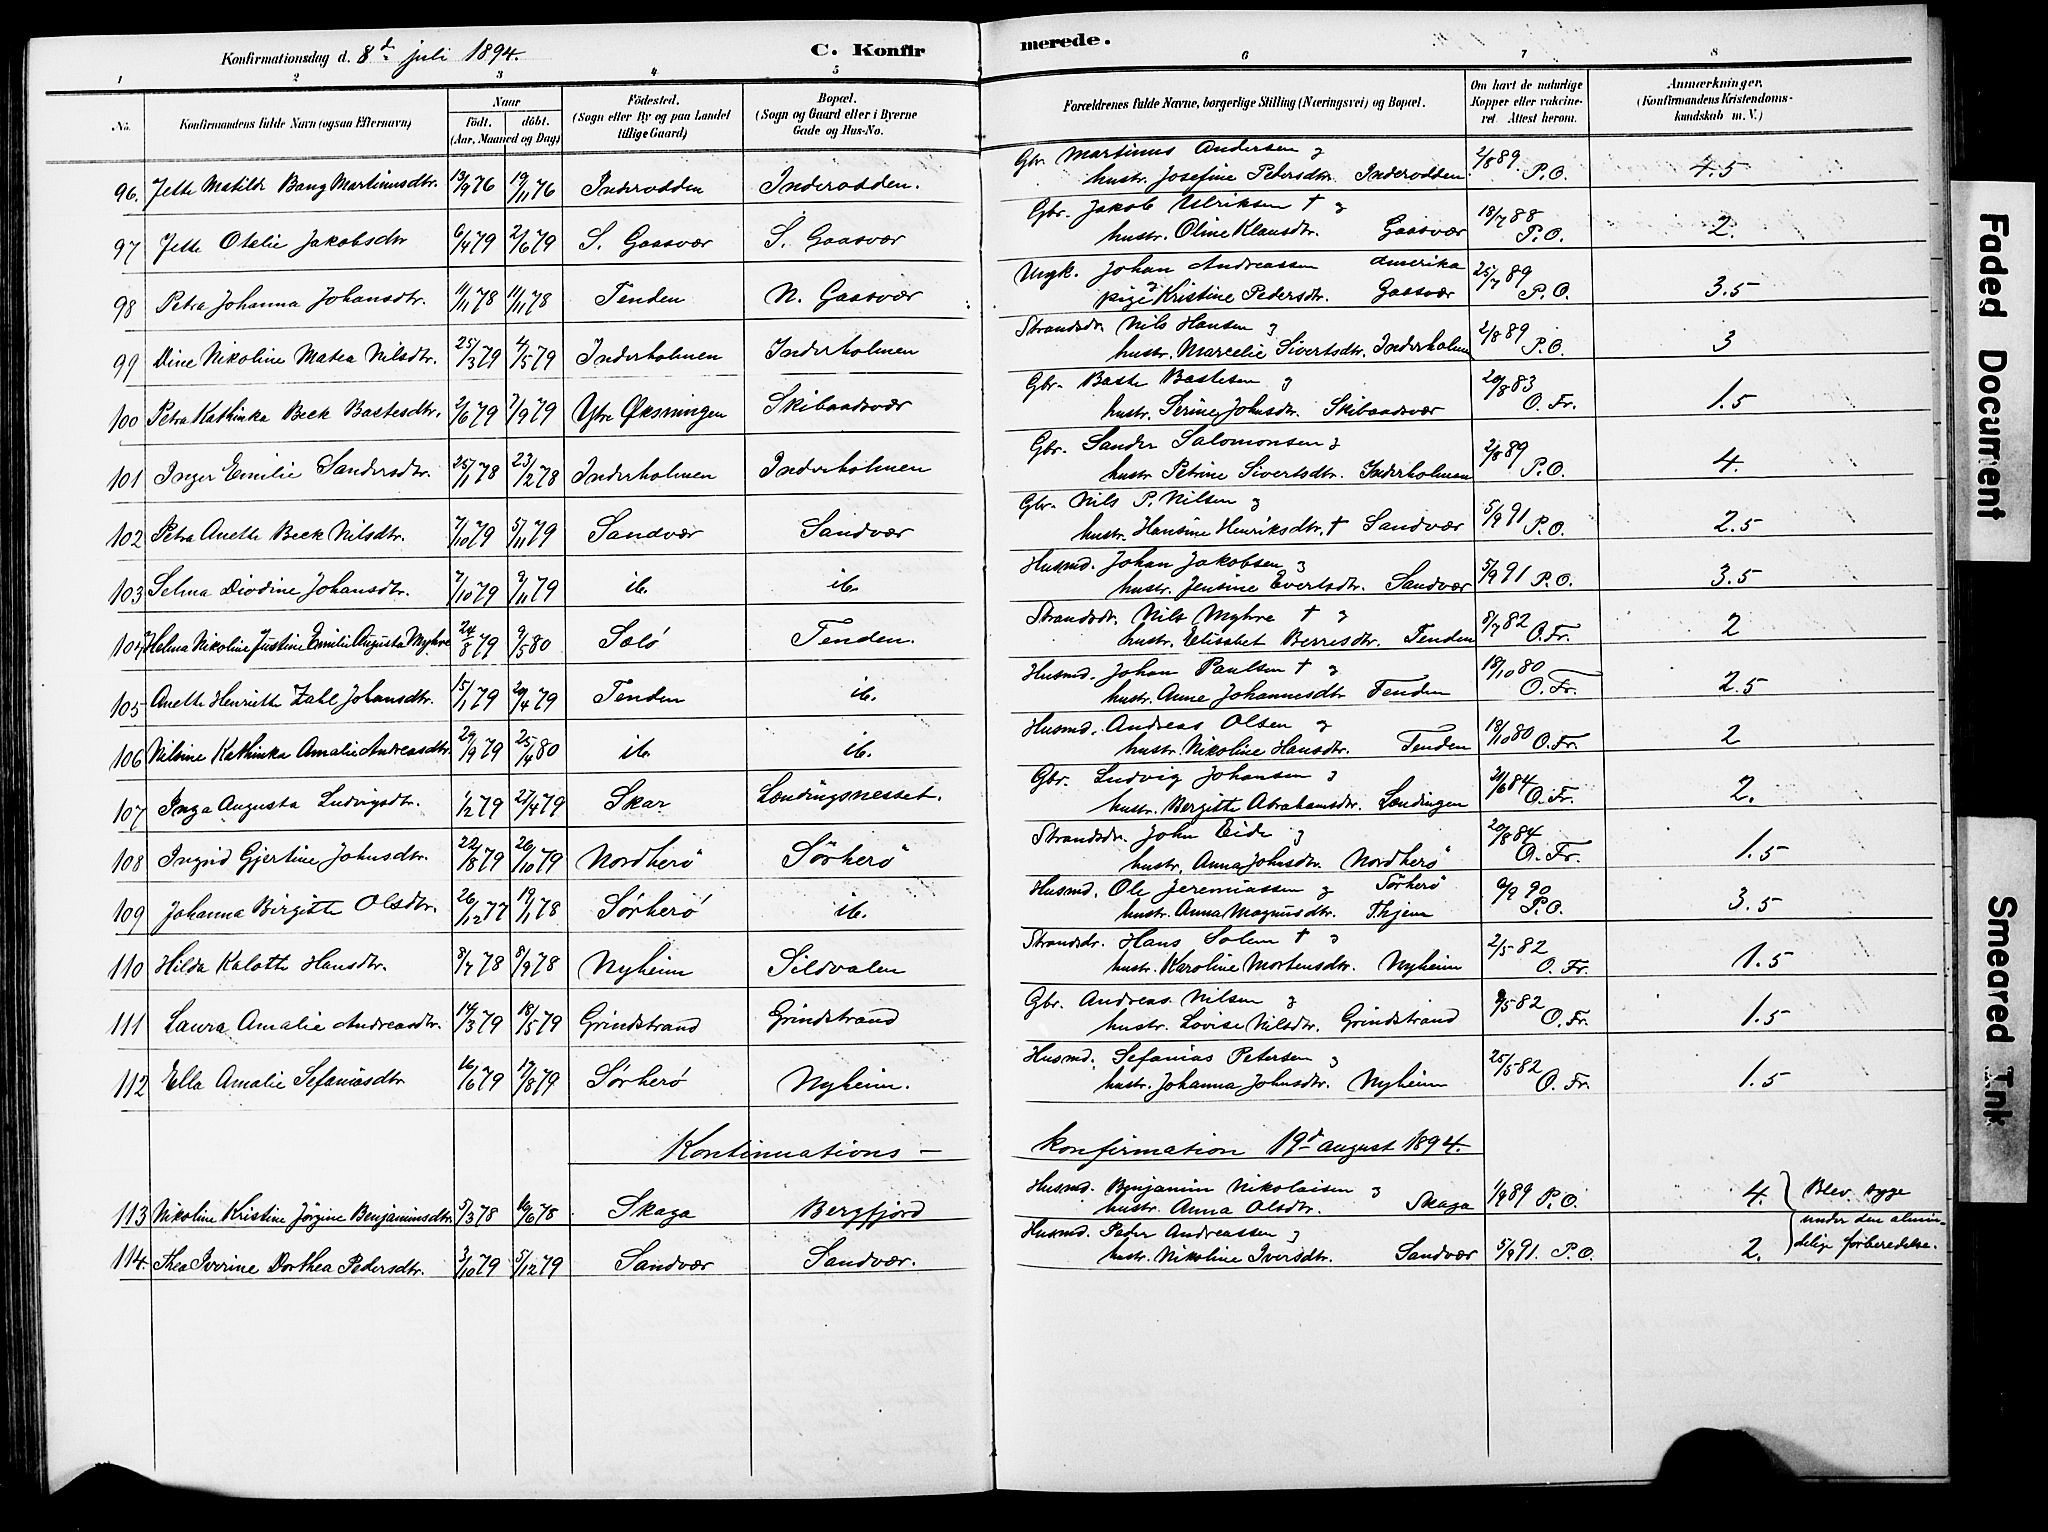 Konfirmationsdag d. 8de juli 1894.
C. Konfirmerede.
1 2 3 4 5 6 7 8
No. Konfirmandens fulde Navn (ogsaa Efternavn) Naar Födt. döbt. (Aar, Maaned og Dag) Födested. (Sogn eller By og paa Landet tillige Gaard) Bopæl. (Sogn og Gaard eller i Byerne Gade og Hus-No. Forældrenes fulde Navne, borgerlige Stilling (Næringsvei) og Bopæl. Om havt de naturlige Kopper eller vaccineret. Attest herom. Anmærkninger. (Konfirmandens Kristendomskundskab m. V.)
96. Jette Matilde Bang Martinusdtr. 13/9 76 19/11 76 Inderodden Inderodden. Gbr. Martinus Andersen og
hustr. Josefine Petersdtr. Inderodden 2/8 89 P. O. 4.5
97 Jette Otelie Jakobsdtr 6/4 79 2/6 79 S. Gaasvær S. Gaasvær Gbr. Jakob Ulriksen † og
hustr. Oline Klausdtr. Gaasvær 18/7 88 P. O. 2.
98 Petra Johanna Johansdtr. 11/1 78 11/11 78 Tenden N. Gaasvær Ungk. Johan Andreassen Amerika
pige Kristine Pedersdtr. Gaasvær 25/7 89 P. O. 3.5
99 Dine Nikoline Matea Nilsdtr. 25/3 79 4/5 79 Inderholmen Inderholmen Strandsdr. Nils Hansen og
hustr. Marcelie Sivertsdtr. Inderholmen 2/8 89 P. O. 3
100 Petra Kathinka Beck Bastesdtr. 2/6 79 7/9 79 Ytre Øksningen Skibaadsvær Gbr. Baste Bastesen og
hustr. Serine Johnsdtr. Skibaadsvær 20/8 83 O. Fr. 1.5
101 Inger Emilie Sandersdtr. 25/1 78 23/2 78 Inderholmen Inderholmen Gbr. Sander Salomonsen og
hustr. Petrine Sivertsdtr. Inderholmen 2/8 89 P. O. 4.
102 Petra Anette Beck Nilsdtr. 7/10 79 5/11 79 Sandvær Sandvær Gbr. Nils P. Nilsen og
hustr. Hansine Henriksdtr. † Sandvær 5/9 91 P. O. 2.5
103 Selma Diodine Johansdtr. 7/10 79 9/11 79 ib. ib. Husmd. Johan Jakobsen og
hustr. Jensine Evertsdtr. Sandvær 5/9 91 P. O. 3.5
104 Helma Nikoline Justine Emilie Augusta Myhre 24/8 79 9/5 80 Solö Tenden. Strandsdr. Nils Myhre † og
hustr. Elisabet Berresdtr. Tenden 8/7 82 O. Fr. 2
105 Anette Henriette Zahl Johansdtr. 15/1 79 20/4 79 Tenden ib. Husmd. Johan Paulsen † og
hustr. Anne Johannesdtr Tenden 18/10 80 O. Fr. 2.5
106 Nilsine Kathinka Amalie Andreasdtr. 29/9 79 25/4 80 ib. ib. Husmd. Andreas Olsen og
hustr. Nikoline Hansdtr. Tenden 18/10 80 O. Fr. 2
107 Inga Augusta Ludvigsdtr. 1/2 79 27/4 79 Skar Lændingsnesset. Gbr. Ludvig Johansen og
hustr. Bergitte Abrahamsdtr. Lændingen 21/6 84 O. Fr. 2.
108 Ingrid Gjertine Johnsdtr. 22/8 79 26/10 79 Nordherö Sörherö Strandsdr. John Eide og
hustr. Anna Johnsdtr. Nordherö 20/8 84 O. Fr. 1.5
109 Johanna Birgitte Olsdtr. 26/12 77 19/1 78 Sörherö ib. Husmd. Ole Jeremiassen og Sörherö
hustr. Anna Magnusdtr. Thjem 9/9 90 P. O. 3.5
110 Hilda Kalotte Hansdtr. 8/7 78 8/9 78 Nyheim Sildvalen Strandsdr. Hans Solem † og
hustr. Karoline Mortensdtr. Nyheim 2/5 82 O. Fr. 1.5
111 Laura Amalie Andreasdtr. 14/3 79 18/5 79 Grindstrand Grindstrand Gbr. Andreas Nilsen og
hustr. Lovise Nilsdtr. Grindstrand 9/5 82 O. Fr. 1.5
112 Ella Amalie Sefaniasdtr 16/6 79 17/8 79 Sörherö Nyheim. Husmd. Sefanias Petersen og
hustr. Johanna Johnsdtr. Nyheim 25/5 82 O. Fr. 1.5
Kontinuations- konfirmation 19de august 1894.
113 Nikoline Kristine Jörgine Benjaminsdtr 5/3 78 10/6 78 Skaga Bergfjord Husmd. Benjamin Nikolaisen og
hustr. Anna Olsdtr. Skaga 1/9 89 P. O. 4. Blev syge
under den almin-
delige forberedelse.
114. Thea Iverine Dorthea Pedersdtr. 3/10 79 5/12 79 Sandvær Sandvær. Husmd. Peder Andreassen og
hustr. Nikoline Iversdtr. Sandvær 5/9 91. P. O. 2.
Faded Document
Smeared Ink